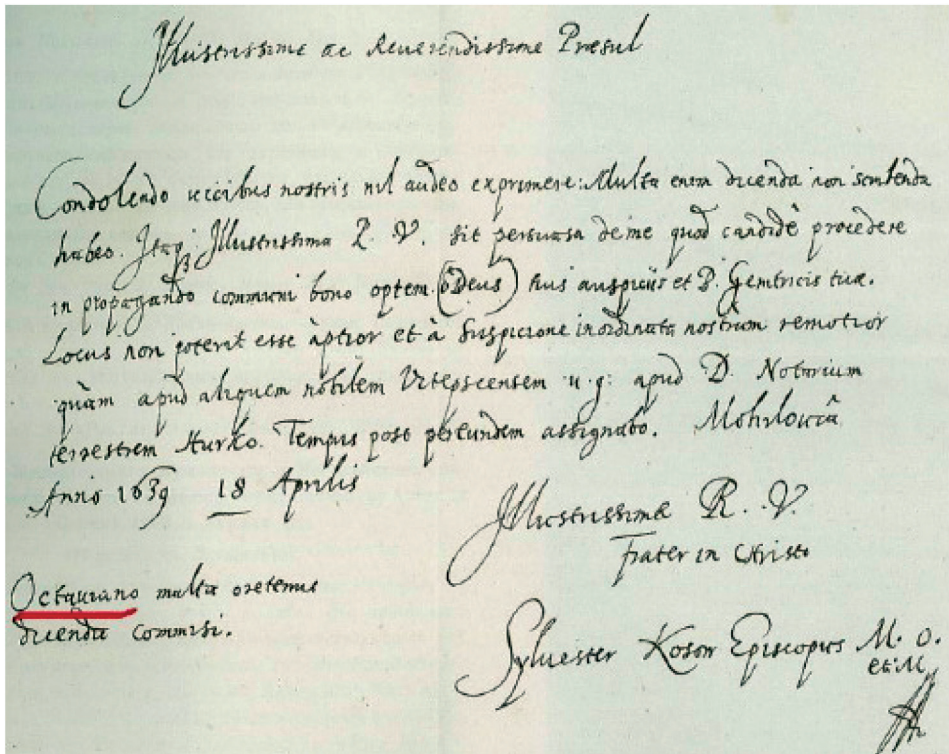 Illustrissime ac Reverendissime Præsul
Condolendo vicibus nostris nil audeo exprimere: Multa enim dicenda non scribenda
habeo. Itaq; Illustrissima R. V. sit persuasa de me quod candidè procedere
in propagando communi bono optem (ô Deus) tuis auspiciis et B. Genitricis tuæ.
Locus non poterit esse àptior et à suspicione inordinata nostrum remotior
quàm apud aliquem nobilem Vitepscensem v. g: apud D. Notarium
terrestrem Hurko. Tempus post per eundem assignabo. Mohilowiâ
Anno 1639 18 Aprilis
Illustrissimæ R. V.
Frater in Christo
Octaviano multa oretenus
dicenda commisi.
Sylvester Kosow Episcopus M. O.
et M.